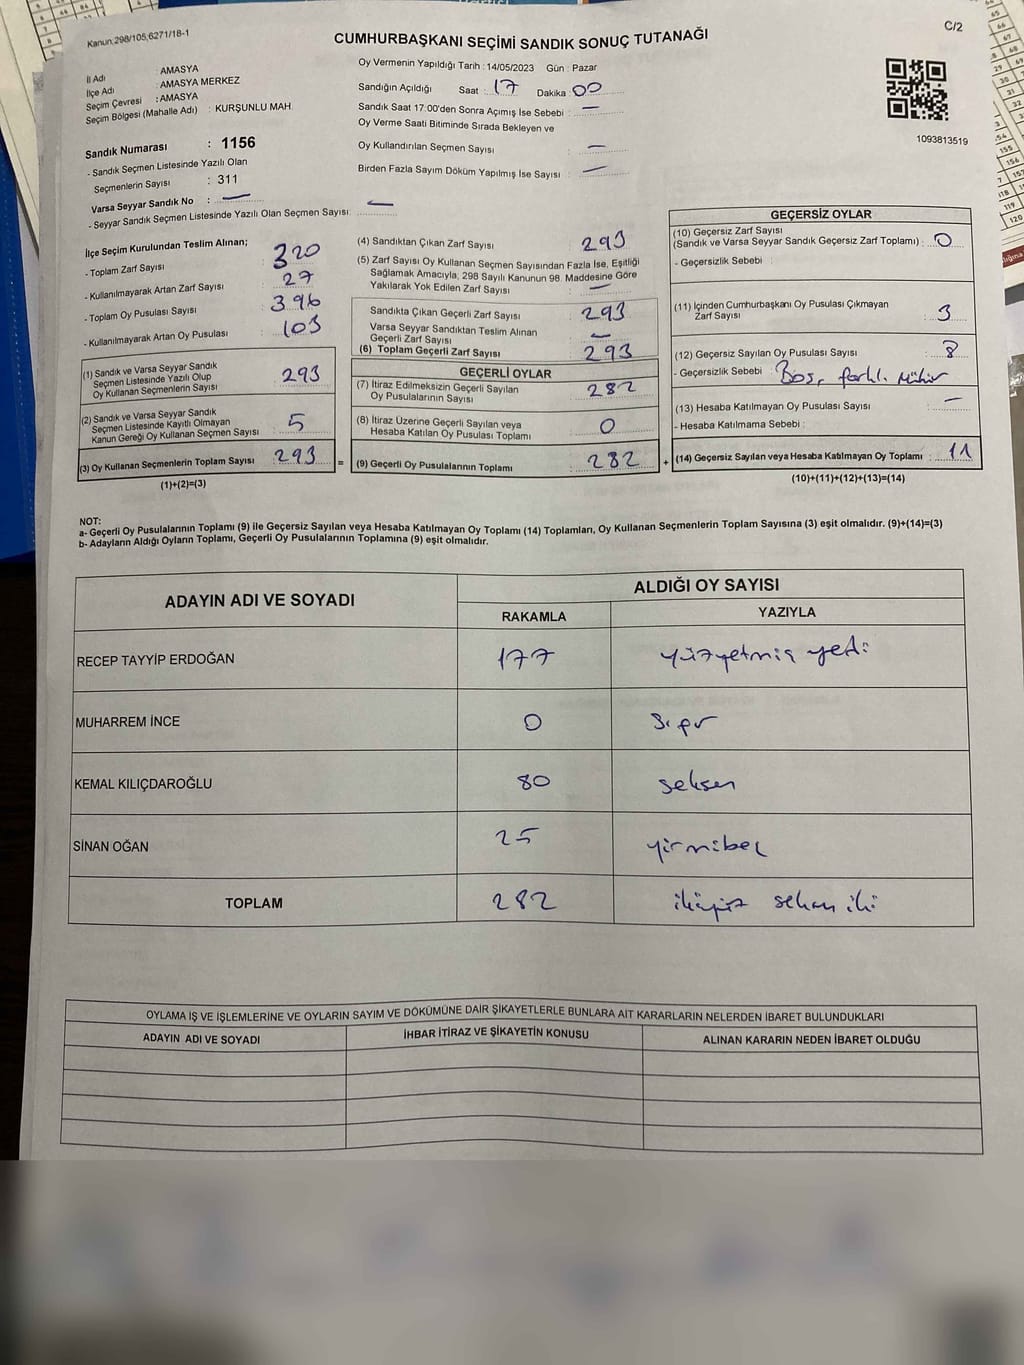 Kanun:298/105,6271/18-1
C/2
CUMHURBAŞKANI SEÇİMİ SANDIK SONUÇ TUTANAĞI
İl Adı : AMASYA
İlçe Adı : AMASYA MERKEZ
Seçim Çevresi : AMASYA
Seçim Bölgesi (Mahalle Adı) : KURŞUNLU MAH.
Oy Vermenin Yapıldığı Tarih : 14/05/2023 Gün : Pazar
Sandığın Açıldığı Saat : 17 Dakika : 00
Sandık Saat 17:00'den Sonra Açımış İse Sebebi : —
Oy Verme Saati Bitiminde Sırada Bekleyen ve
Oy Kullandırılan Seçmen Sayısı : —
Birden Fazla Sayım Döküm Yapılmış İse Sayısı : —
1093813519
Sandık Numarası : 1156
- Sandık Seçmen Listesinde Yazılı Olan
Seçmenlerin Sayısı : 311
Varsa Seyyar Sandık No : —
- Seyyar Sandık Seçmen Listesinde Yazılı Olan Seçmen Sayısı: —
İlçe Seçim Kurulundan Teslim Alınan;
- Toplam Zarf Sayısı : 320
- Kullanılmayarak Artan Zarf Sayısı : 27
- Toplam Oy Pusulası Sayısı : 396
- Kullanılmayarak Artan Oy Pusulası : 103
(1) Sandık ve Varsa Seyyar Sandık
Seçmen Listesinde Yazılı Olup
Oy Kullanan Seçmenlerin Sayısı : 293
(2) Sandık ve Varsa Seyyar Sandık
Seçmen Listesinde Kayıtlı Olmayan
Kanun Gereği Oy Kullanan Seçmen Sayısı : 5
(3) Oy Kullanan Seçmenlerin Toplam Sayısı : 293 =
(1)+(2)=(3)
(4) Sandıktan Çıkan Zarf Sayısı : 293
(5) Zarf Sayısı Oy Kullanan Seçmen Sayısından Fazla İse, Eşitliği
Sağlamak Amacıyla, 298 Sayılı Kanunun 98. Maddesine Göre
Yakılarak Yok Edilen Zarf Sayısı : —
Sandıkta Çıkan Geçerli Zarf Sayısı : 293
Varsa Seyyar Sandıktan Teslim Alınan
Geçerli Zarf Sayısı : —
(6) Toplam Geçerli Zarf Sayısı : 293
GEÇERLİ OYLAR
(7) İtiraz Edilmeksizin Geçerli Sayılan
Oy Pusulalarının Sayısı : 282
(8) İtiraz Üzerine Geçerli Sayılan veya
Hesaba Katılan Oy Pusulası Toplamı : 0
(9) Geçerli Oy Pusulalarının Toplamı : 282 +
GEÇERSİZ OYLAR
(10) Geçersiz Zarf Sayısı
(Sandık ve Varsa Seyyar Sandık Geçersiz Zarf Toplamı) : 0
- Geçersizlik Sebebi :
(11) İçinden Cumhurbaşkanı Oy Pusulası Çıkmayan
Zarf Sayısı : 3
(12) Geçersiz Sayılan Oy Pusulası Sayısı : 8
- Geçersizlik Sebebi : Boş, farklı mühür
(13) Hesaba Katılmayan Oy Pusulası Sayısı : —
- Hesaba Katılmama Sebebi :
(14) Geçersiz Sayılan veya Hesaba Katılmayan Oy Toplamı : 11
(10)+(11)+(12)+(13)=(14)
NOT:
a- Geçerli Oy Pusulalarının Toplamı (9) ile Geçersiz Sayılan veya Hesaba Katılmayan Oy Toplamı (14) Toplamları, Oy Kullanan Seçmenlerin Toplam Sayısına (3) eşit olmalıdır. (9)+(14)=(3)
b- Adayların Aldığı Oyların Toplamı, Geçerli Oy Pusulalarının Toplamına (9) eşit olmalıdır.
ADAYIN ADI VE SOYADI ALDIĞI OY SAYISI
RAKAMLA YAZIYLA
RECEP TAYYİP ERDOĞAN 177 yüzyetmiş yedi
MUHARREM İNCE 0 Sıfır
KEMAL KILIÇDAROĞLU 80 seksen
SİNAN OĞAN 25 yirmibeş
TOPLAM 282 ikiyüz seksen iki
OYLAMA İŞ VE İŞLEMLERİNE VE OYLARIN SAYIM VE DÖKÜMÜNE DAİR ŞİKAYETLERLE BUNLARA AİT KARARLARIN NELERDEN İBARET BULUNDUKLARI
ADAYIN ADI VE SOYADI İHBAR İTİRAZ VE ŞİKAYETİN KONUSU ALINAN KARARIN NEDEN İBARET OLDUĞU